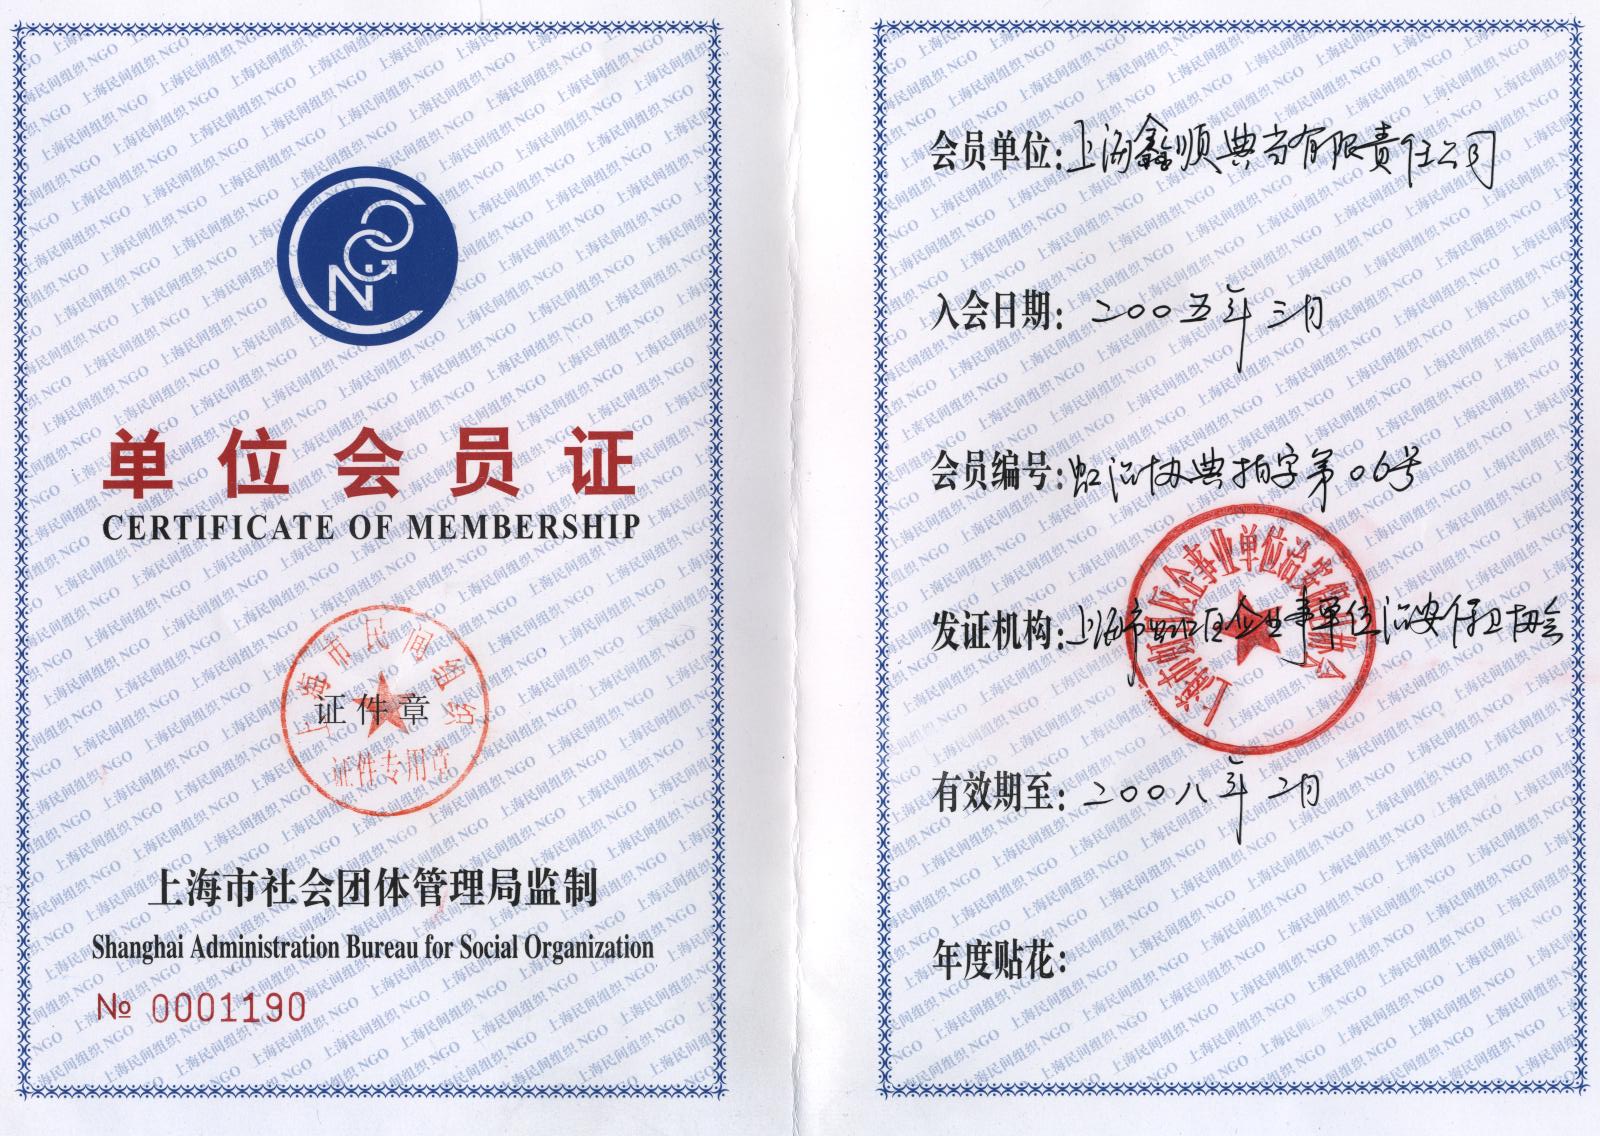 单位会员证
CERTIFICATE OF MEMBERSHIP
上海市民间组织
证件章
证件专用章
上海市社会团体管理局监制
Shanghai Administration Bureau for Social Organization
№ 0001190
会员单位:上海鑫顺典当有限责任公司
入会日期:二〇〇五年三月
会员编号:虹治协典拍字第06号
发证机构:上海市虹口区企业事业单位治安保卫协会
有效期至:二〇〇八年二月
年度贴花:
上海民间组织 NGO